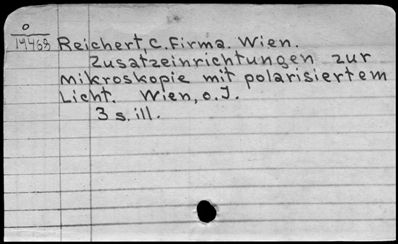 O
19463
Reichert, C. Firma. Wien.
Zusatzeinrichtungen zur
Mikroskopie mit polarisiertem
Licht. Wien, o.J.
3 s. ill.